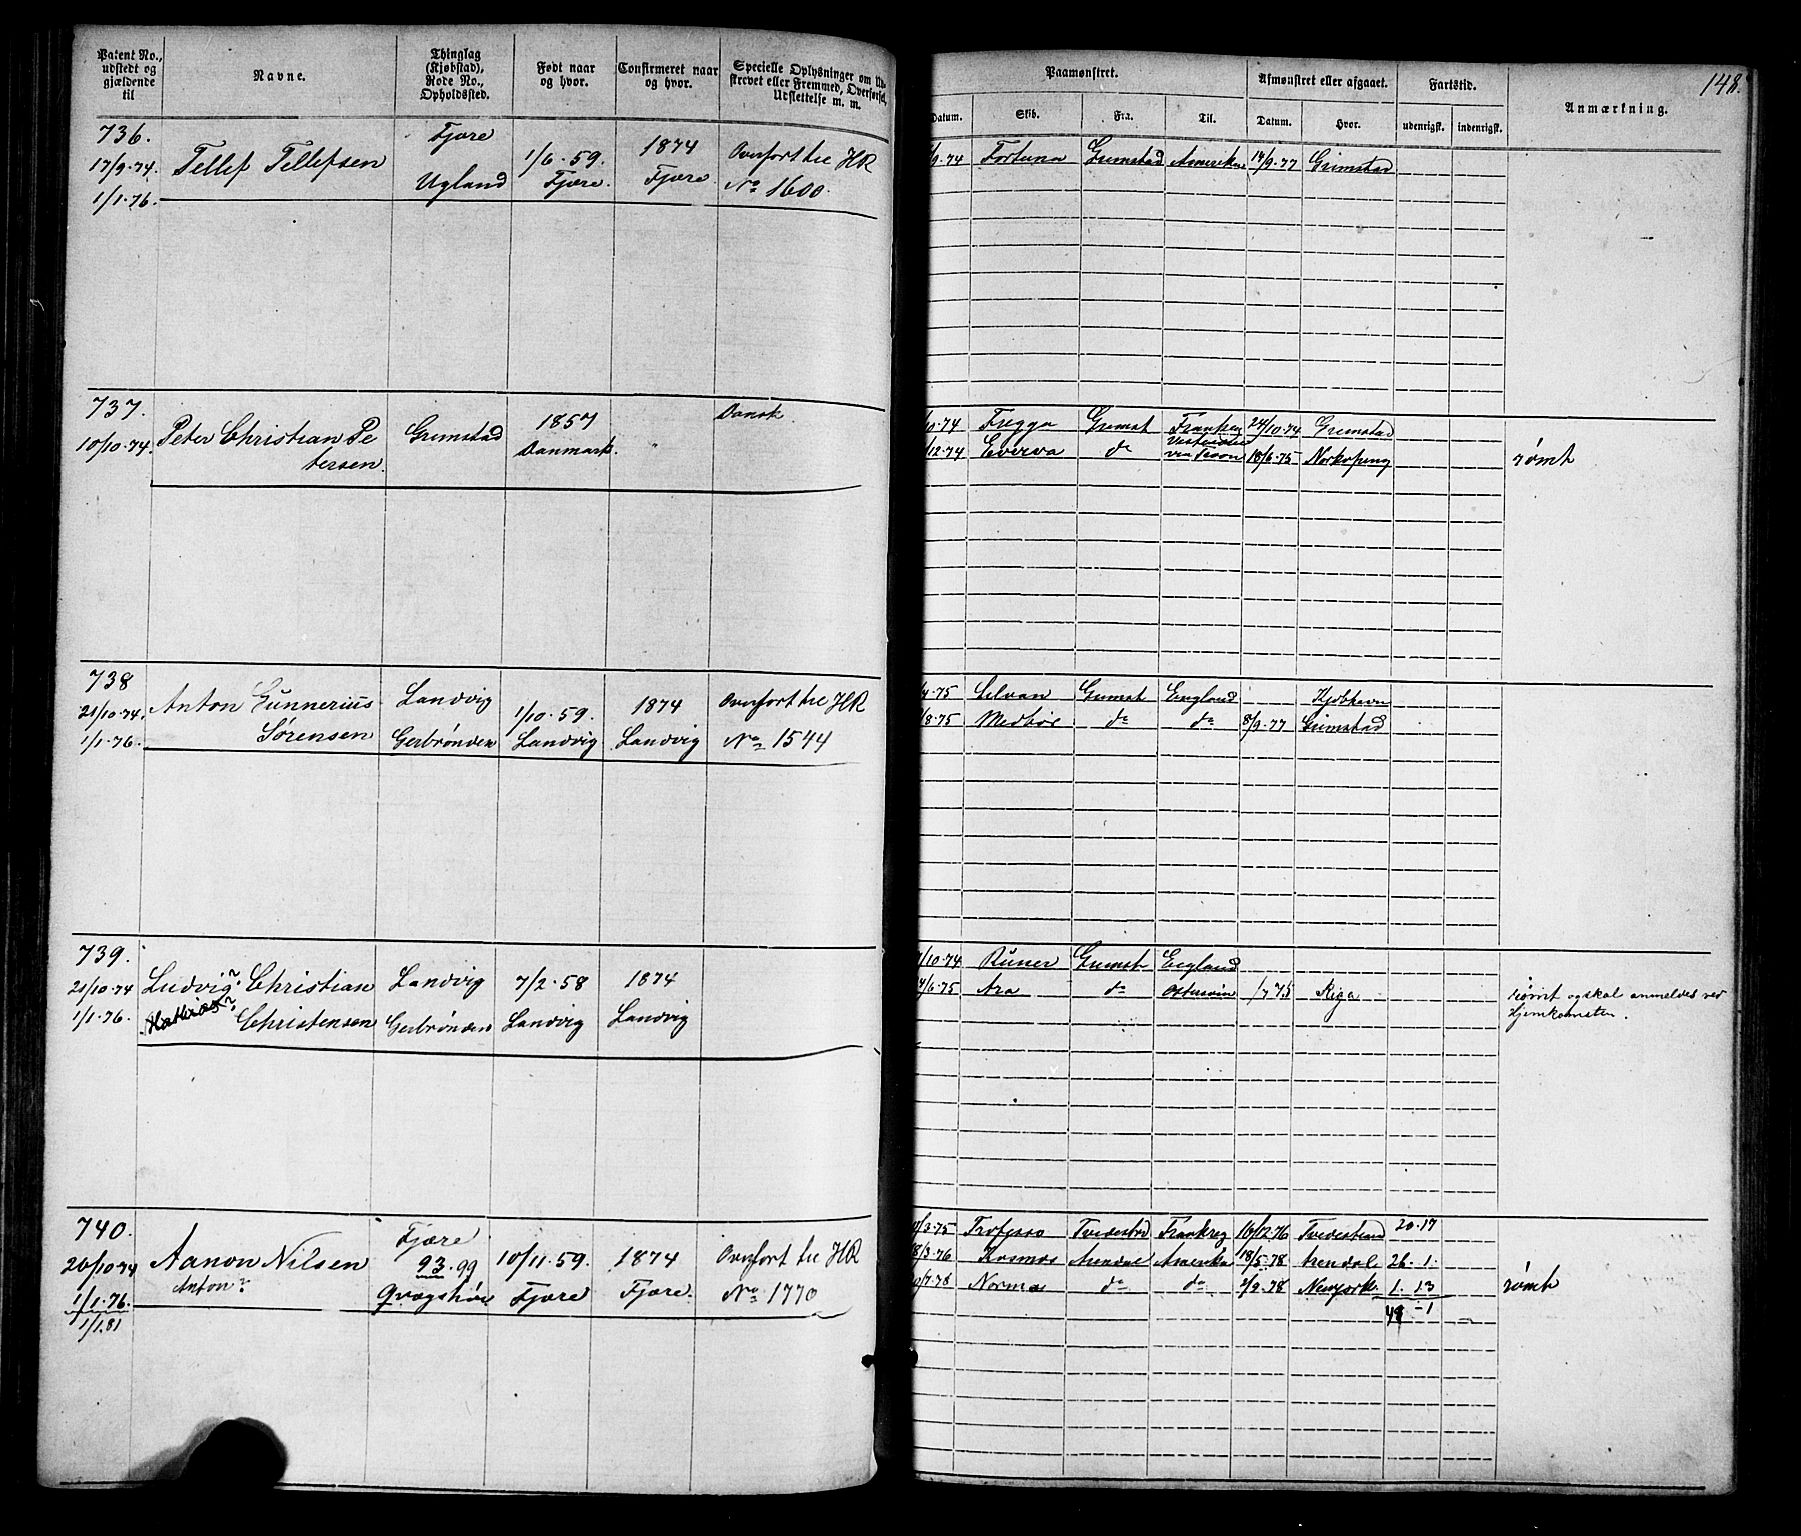 Patent No., udstedt og gjældende til
Navne.
Thinglag (Kjøbstad), Rode No., Opholdssted.
Født naar og hvor.
Confirmeret naar og hvor.
Specielle Oplysninger om Ud-
skrevet eller Fremmed, Overførsel,
Udslettelse m. m.
Paamønstret.
Afmønstret eller afgaaet.
Fartstid.
Anmærkning.
148.
Datum.
Skib.
Fra.
Til.
Datum.
Hvor.
udenrigsk.
indenrigsk.
736.
17/9.74
1/1.76.
Tellef Tellefsen
Fjære
Ugland
1/6.59.
Fjære.
1874
Fjære.
Overfort til HR
No 1600.
/9.74 Fortuna Grimstad Amerika 14/9.77 Grimstad
737.
10/10.74.
Peter Christian Pe
tersen.
Grimstad
1857
Danmark.
"
Dansk
/10.74 Freggo Grimst Frankrg 24/10.74 Grimstad
/12.74 Everva do 18/6.75 Norkøping
rømt
738
21/10.74.
1/1.76.
Anton Gunnerius
Sørensen
Landvig
Gerbrønden
1/10.59.
Landvig
1874
Landvig
Overfort til HR
No 1544
/4.75 Grimst England Kjøbhavn
/8.75 Medbør do do 8/9.77 Grimstad
739.
21/10.74
1/1.76.
Ludvig Christian
Christensen
Landvig
Gerbrønden
7/2.58
Landvig
1874
Landvig
/10.74 Runer Grimst England
/6.75 Ara do Østersøen /7 75 Riga
rømt og skal anmeldes ved
Hjemkomsten.
740.
26/10.74
1/1.76.
1/1.81
Aanon Nilsen
Anton?
Fjære
93.99
10/11.59.
Fjære
1874
Fjære.
Overfort til HR
No 1770
/3.75 Tvedestrd Frankrg 16/12.76 Tvedestrand 20.17
18/3.76 Kosmos Arendal Amerika 18/5.78 Arendal 26.1.
/7.78 Norma do do /9.78 Newyork. 1.13
48 - 1
rømt